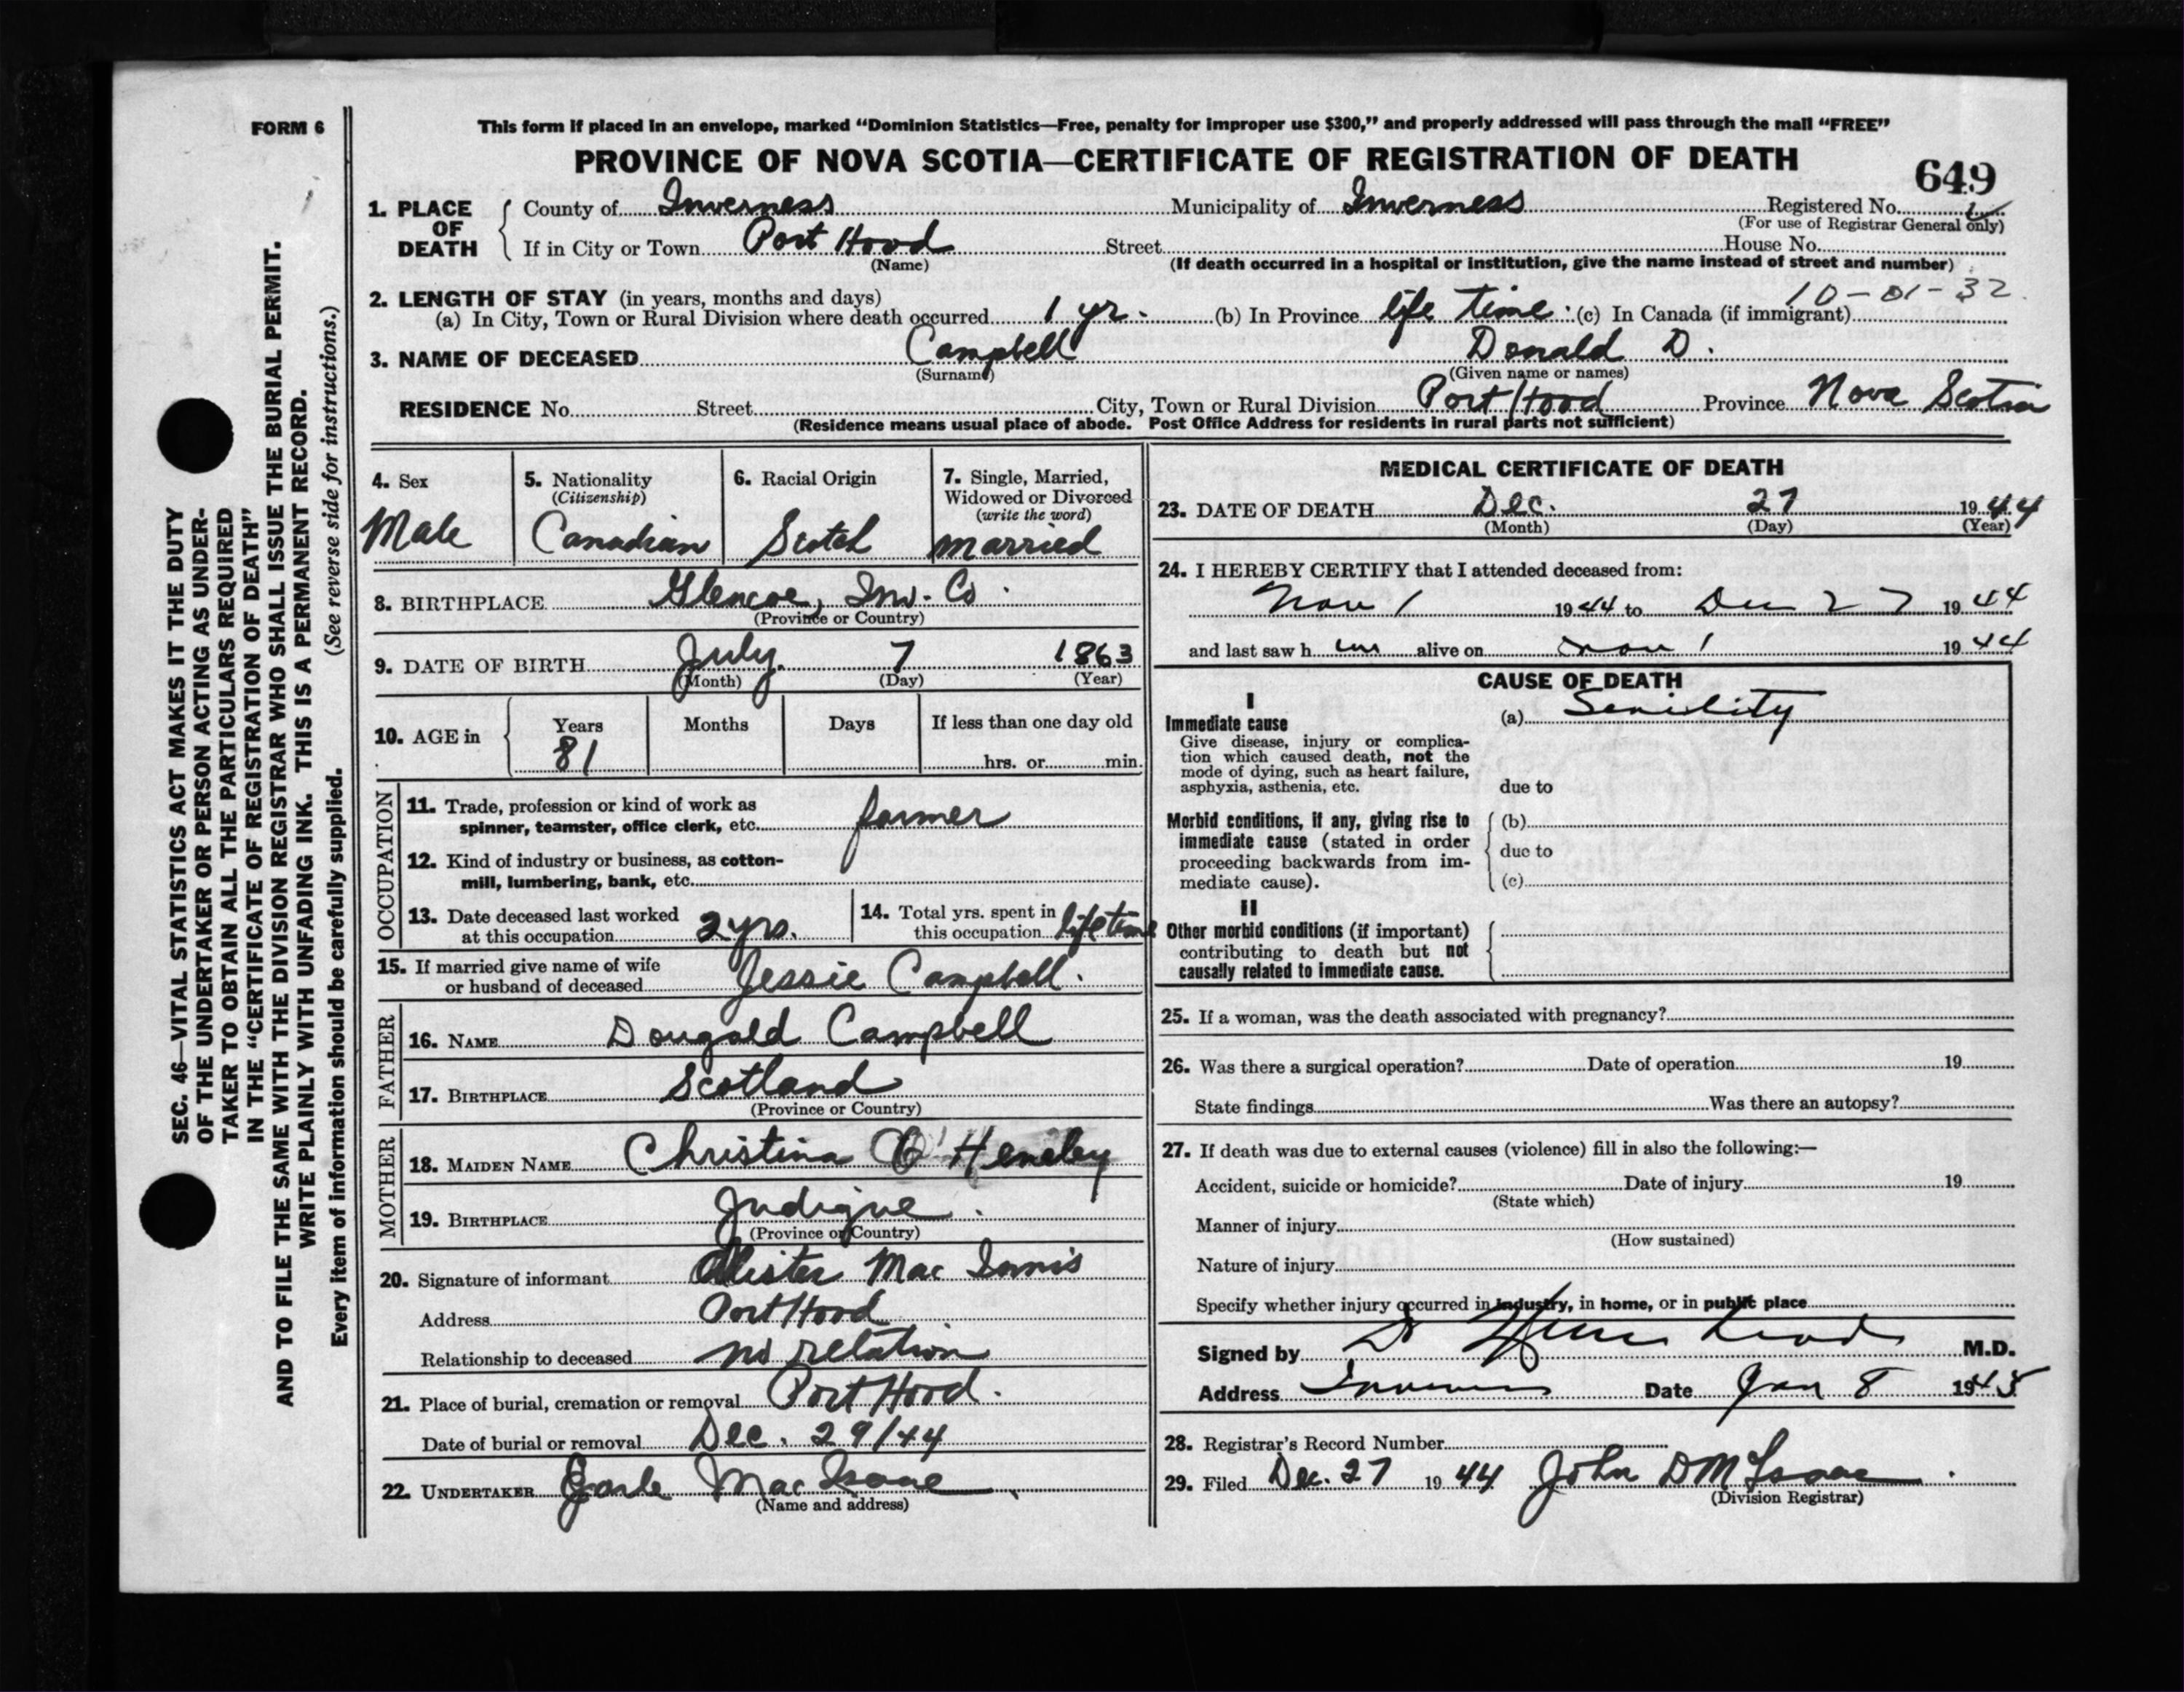 FORM 6
This form if placed in an envelope, marked “Dominion Statistics—Free, penalty for improper use $300,” and properly addressed will pass through the mail “FREE”
PROVINCE OF NOVA SCOTIA—CERTIFICATE OF REGISTRATION OF DEATH
649
1. PLACE OF DEATH
County of Inverness Municipality of Inverness Registered No.
(For use of Registrar General only)
If in City or Town Port Hood Street House No.
(Name) (If death occurred in a hospital or institution, give the name instead of street and number)
10-01-32
2. LENGTH OF STAY (in years, months and days)
(a) In City, Town or Rural Division where death occurred 1 yr. (b) In Province life time (c) In Canada (if immigrant)
3. NAME OF DECEASED Campbell Donald D.
(Surname) (Given name or names)
RESIDENCE No. Street City, Town or Rural Division Port Hood Province Nova Scotia
(Residence means usual place of abode. Post Office Address for residents in rural parts not sufficient)
4. Sex
Male
5. Nationality
(Citizenship)
Canadian
6. Racial Origin
Scotch
7. Single, Married,
Widowed or Divorced
(write the word)
married
8. BIRTHPLACE Glencoe, Inv. Co
(Province or Country)
9. DATE OF BIRTH July 7 1863
(Month) (Day) (Year)
10. AGE in
Years Months Days If less than one day old
81 hrs. or min.
OCCUPATION
11. Trade, profession or kind of work as
spinner, teamster, office clerk, etc. farmer
12. Kind of industry or business, as cotton-
mill, lumbering, bank, etc.
13. Date deceased last worked
at this occupation 2 yrs.
14. Total yrs. spent in
this occupation lifetime
15. If married give name of wife
or husband of deceased Jessie Campbell.
FATHER
16. NAME Dougald Campbell
17. BIRTHPLACE Scotland
(Province or Country)
MOTHER
18. MAIDEN NAME Christina O'Henley
19. BIRTHPLACE Judique.
(Province or Country)
20. Signature of informant Alister Mac Innis
Address Port Hood
Relationship to deceased no relation
21. Place of burial, cremation or removal Port Hood.
Date of burial or removal Dec. 29/44
22. UNDERTAKER Earle Mac Isaac
(Name and address)
MEDICAL CERTIFICATE OF DEATH
23. DATE OF DEATH Dec. 27 1944
(Month) (Day) (Year)
24. I HEREBY CERTIFY that I attended deceased from:
Nov 1 1944 to Dec 27 1944
and last saw h im alive on Nov 1 1944
CAUSE OF DEATH
I
Immediate cause
Give disease, injury or complica-
tion which caused death, not the
mode of dying, such as heart failure,
asphyxia, asthenia, etc.
(a) Senility
due to
Morbid conditions, if any, giving rise to
immediate cause (stated in order
proceeding backwards from im-
mediate cause).
(b)
due to
(c)
II
Other morbid conditions (if important)
contributing to death but not
causally related to immediate cause.
25. If a woman, was the death associated with pregnancy?
26. Was there a surgical operation? Date of operation 19
State findings Was there an autopsy?
27. If death was due to external causes (violence) fill in also the following:—
Accident, suicide or homicide? Date of injury 19
(State which)
Manner of injury
(How sustained)
Nature of injury
Specify whether injury occurred in industry, in home, or in public place
Signed by M.D.
Address Inverness Date Jan 8 1945
28. Registrar's Record Number
29. Filed Dec. 27 1944 John D McIsaac
(Division Registrar)
SEC. 46—VITAL STATISTICS ACT MAKES IT THE DUTY
OF THE UNDERTAKER OR PERSON ACTING AS UNDER-
TAKER TO OBTAIN ALL THE PARTICULARS REQUIRED
IN THE “CERTIFICATE OF REGISTRATION OF DEATH”
AND TO FILE THE SAME WITH THE DIVISION REGISTRAR WHO SHALL ISSUE THE BURIAL PERMIT.
WRITE PLAINLY WITH UNFADING INK. THIS IS A PERMANENT RECORD.
Every item of information should be carefully supplied. (See reverse side for instructions.)